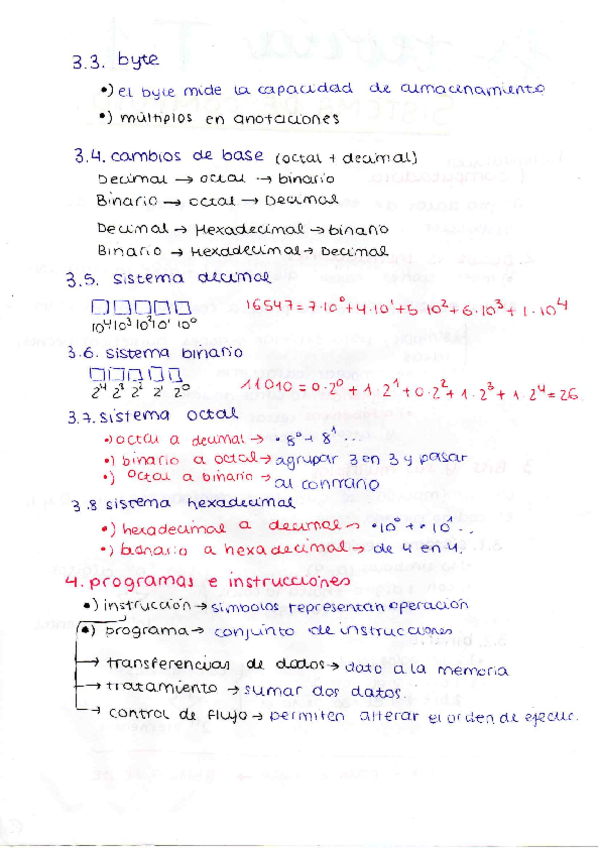 3.3. byte
•) el byte mide la capacidad de almacenamiento
•) múltiplos en anotaciones
3.4. cambios de base (octal + decimal)
Decimal → octal → binario
Binario → octal → Decimal
Decimal → Hexadecimal → binario
Binario → Hexadecimal → Decimal
3.5. sistema decimal
10⁴ 10³ 10² 10¹ 10⁰ 16547 = 7·10⁰ + 4·10¹ + 5·10² + 6·10³ + 1·10⁴
3.6. sistema binario
2⁴ 2³ 2² 2¹ 2⁰ 11010 = 0·2⁰ + 1·2¹ + 0·2² + 1·2³ + 1·2⁴ = 26
3.7. sistema octal
•) octal a decimal → ·8⁰ + 8¹ ...
•) binario a octal → agrupar 3 en 3 y pasar
•) octal a binario → al contrario
3.8 sistema hexadecimal
•) hexadecimal a decimal → ·10⁰ + ·10¹ ...
•) binario a hexadecimal → de 4 en 4.
4. programas e instrucciones
•) instrucción → símbolos representan operación
•) programa → conjunto de instrucciones
→ transferencias de datos → dato a la memoria
→ tratamiento → sumar dos datos.
→ control de flujo → permiten alterar el orden de ejecuc.